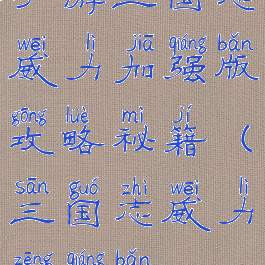 wēi lì jiā qiáng bǎn
威力加强版
gōng lüè mì jí
攻略秘籍（
sān guó zhì wēi lì
三国志威力
zēng qiáng bǎn